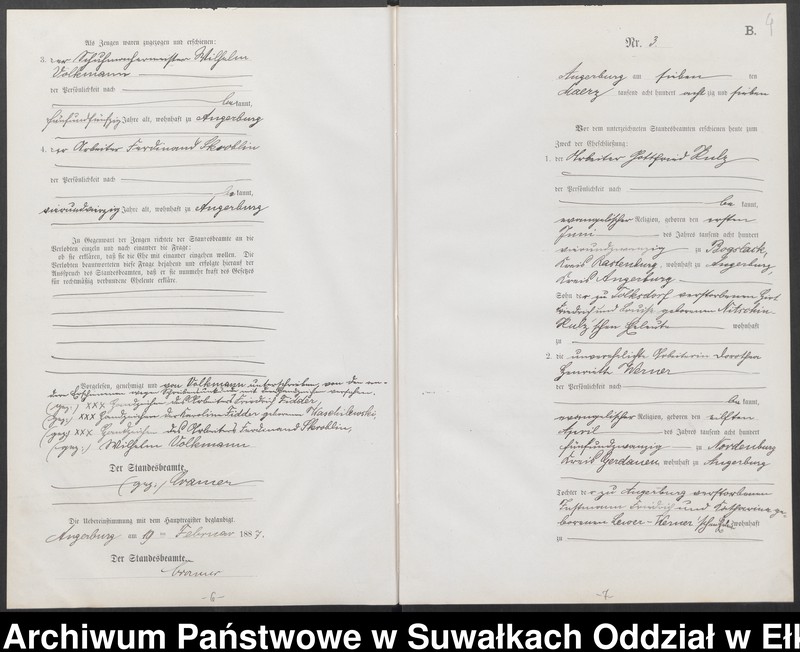 Als Zeugen waren zugezogen und erschienen:
3. der Schuhmachermeister Wilhelm
Volkmann
der Persönlichkeit nach
bekannt,
fünfundfünfzig Jahre alt, wohnhaft zu Angerburg
4. der Arbeiter Ferdinand Skroblin
der Persönlichkeit nach
bekannt,
vierundvierzig Jahre alt, wohnhaft zu Angerburg
In Gegenwart der Zeugen richtete der Standesbeamte an die
Verlobten einzeln und nach einander die Frage:
ob sie erklären, daß sie die Ehe mit einander eingehen wollen. Die
Verlobten beantworteten diese Frage bejahend und erfolgte hierauf der
Ausspruch des Standesbeamten, daß er sie nunmehr kraft des Gesetzes
für rechtmäßig verbundene Eheleute erkläre.
Vorgelesen, genehmigt und von Volkmann unterschrieben, von den an-
dern Erschienenen wegen mit Handzeichen versehen.
(gez.) XXX Handzeichen des Arbeiters Friedrich Fidder,
(gez.) XXX Handzeichen der Karoline Fidder geborene Waschilewski,
(gez.) XXX Handzeichen des Arbeiters Ferdinand Skroblin,
(gez.) Wilhelm Volkmann
Der Standesbeamte.
(gez.) Cramer
Die Uebereinstimmung mit dem Hauptregister beglaubigt.
Angerburg am 19 ten Februar 1887.
Der Standesbeamte.
Cramer
-6-
B. 4
Nr. 3
Angerburg am sieben ten
Maerz tausend acht hundert achtzig und sieben
Vor dem unterzeichneten Standesbeamten erschienen heute zum
Zweck der Eheschließung:
1. der Arbeiter Gottfried Kulz
der Persönlichkeit nach
bekannt,
evangelischer Religion, geboren den ersten
Juni des Jahres tausend acht hundert
vierundzwanzig zu Bogslack,
Kreis Rastenburg, wohnhaft zu Angerburg
Kreis Angerburg
Sohn der zu Tolksdorf verstorbenen Hirt
Friedrich und Louise geborenen Nitschin
Kulz'schen Eheleute wohnhaft
zu
2. die unverehelichte Arbeiterin Dorothea
Henriette Werner
der Persönlichkeit nach
bekannt,
evangelischer Religion, geboren den elften
April des Jahres tausend acht hundert
fünfundzwanzig zu Nordenburg
Kreis Gerdauen, wohnhaft zu Angerburg
Tochter der zu Angerburg verstorbenen
Instmann Friedrich und Katharina ge-
borenen Werner'schen wohnhaft
zu
-7-
Archiwum Państwowe w Suwałkach Oddział w Ełk